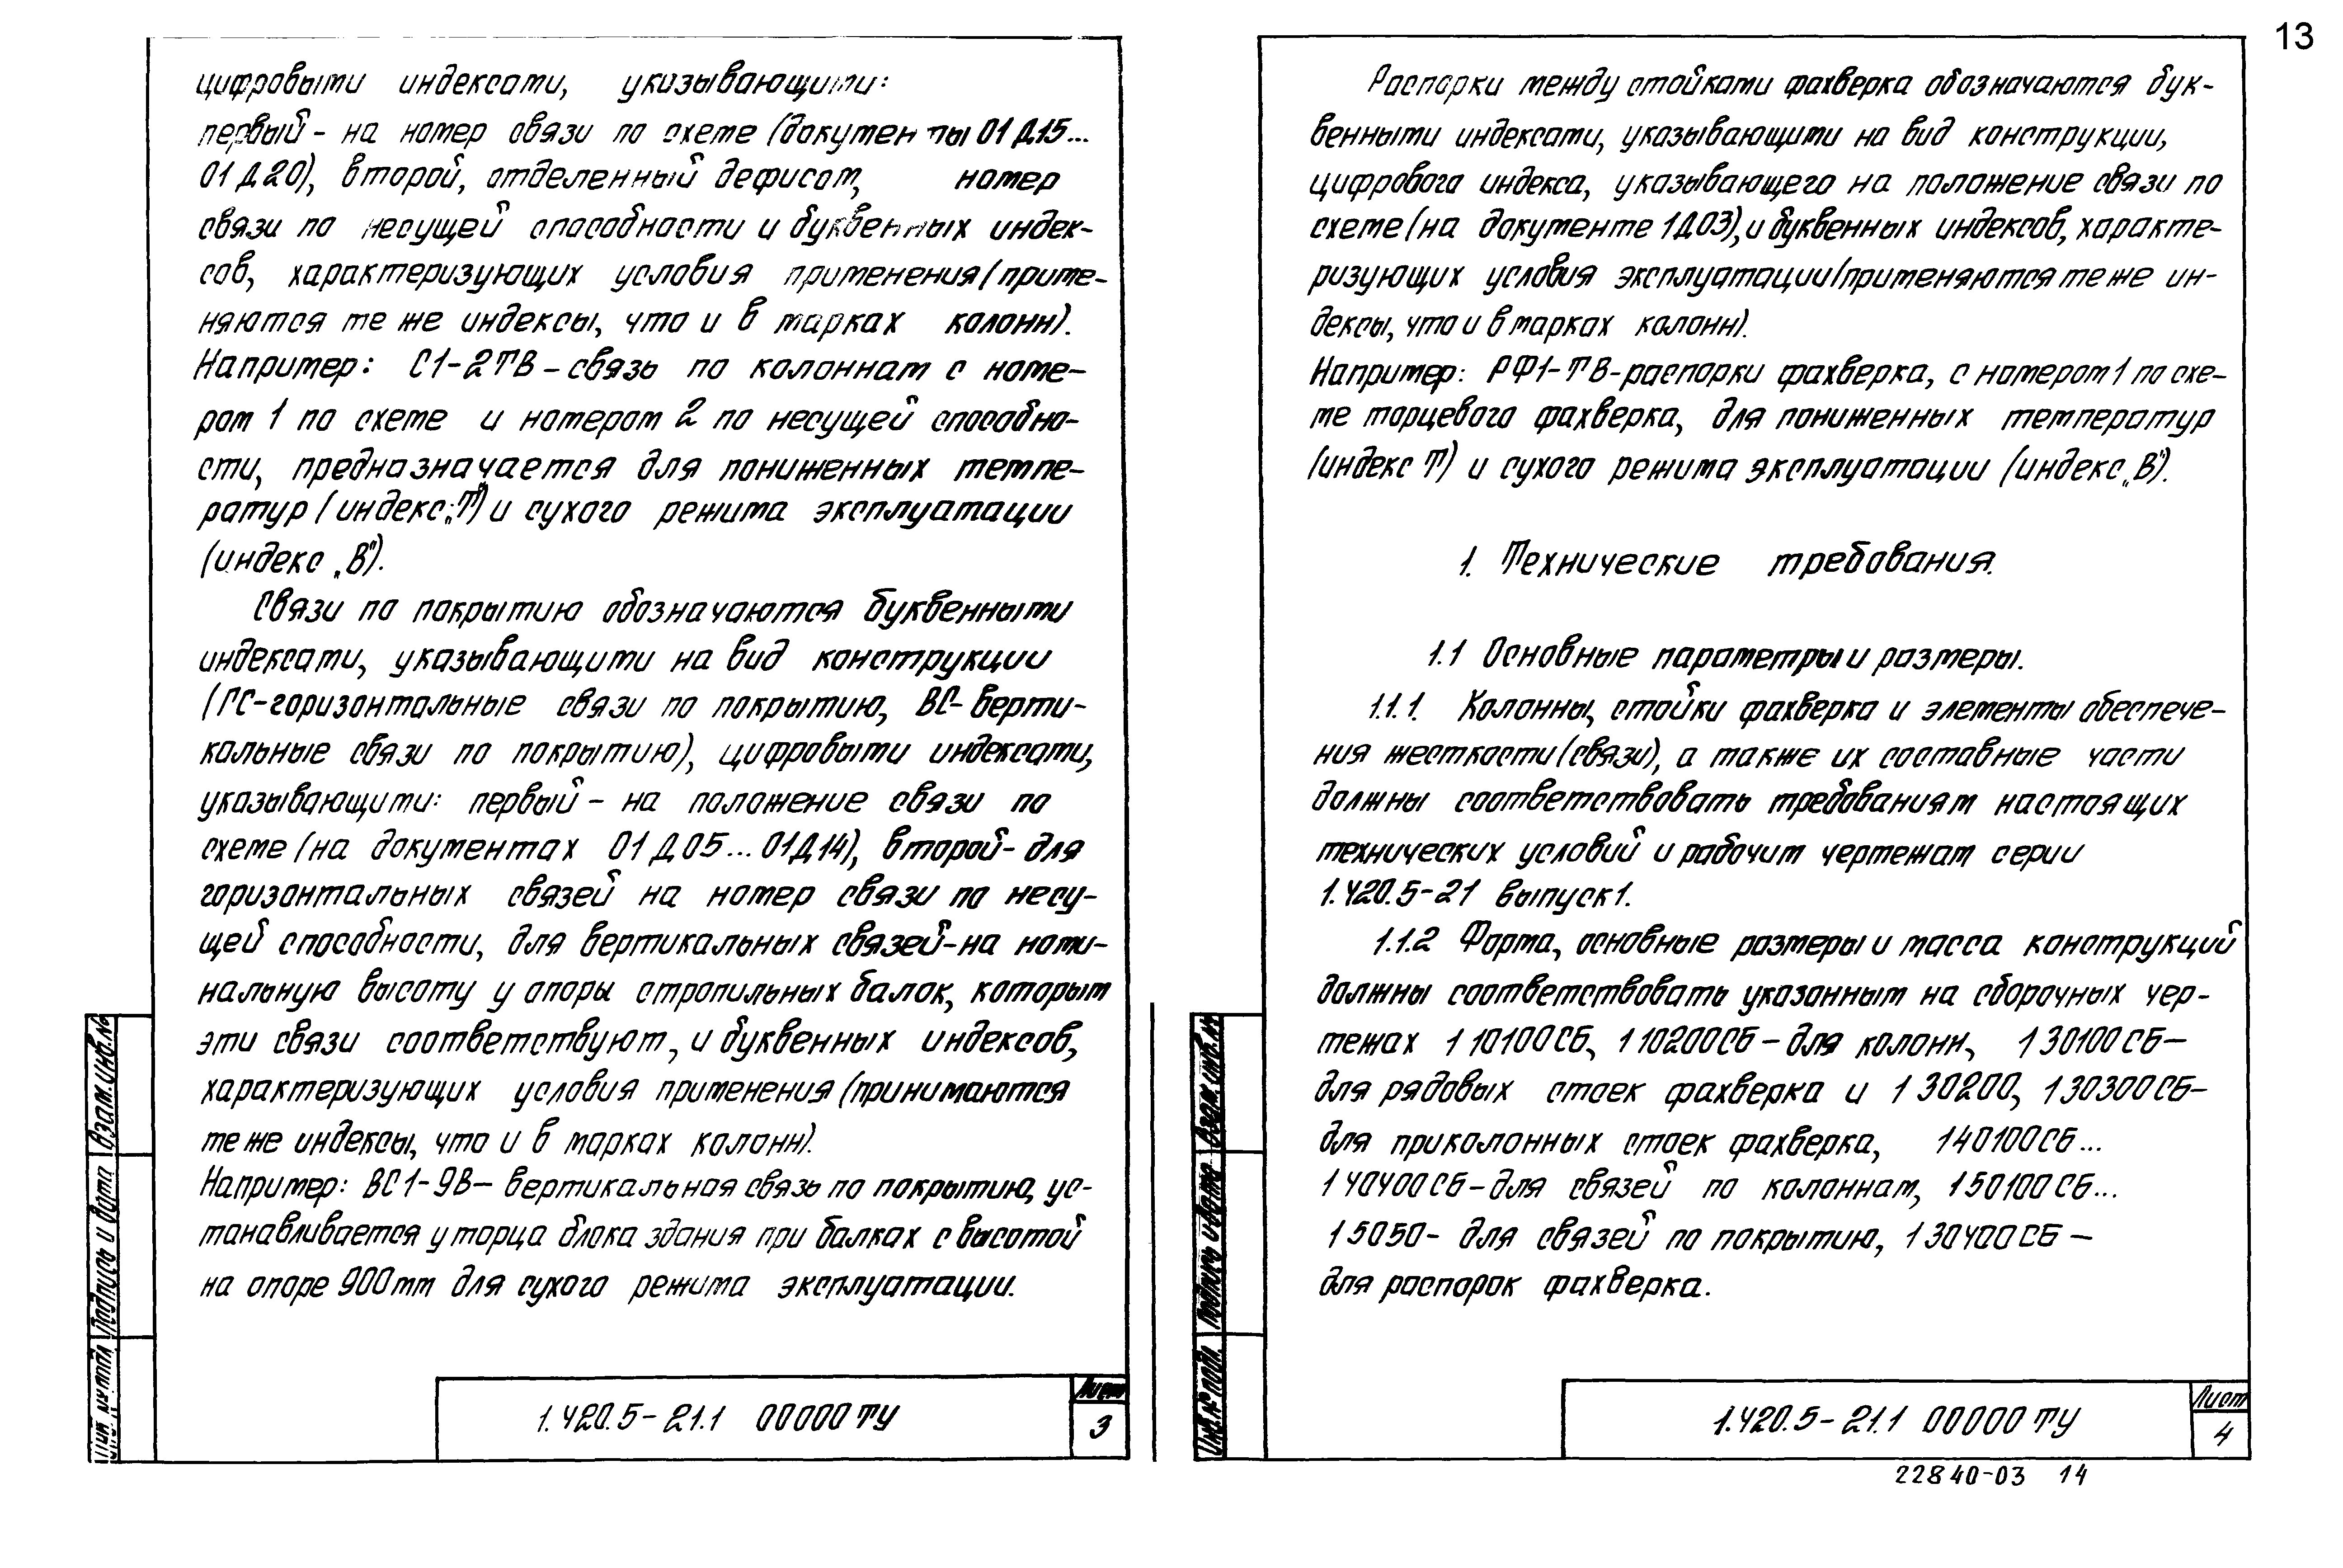 13
цифровыми индексами, указывающими:
первый - на номер связи по схеме (документы 01Д15...
01Д20), второй, отделенный дефисом, номер
связи по несущей способности и буквенных индек-
сов, характеризующих условия применения (приме-
няются те же индексы, что и в марках колонн).
Например: С1-2ТВ - связь по колоннам с номе-
ром 1 по схеме и номером 2 по несущей способно-
сти, предназначается для пониженных темпе-
ратур (индекс „Т") и сухого режима эксплуатации
(индекс „В").
Связи по покрытию обозначаются буквенными
индексами, указывающими на вид конструкции
(ГС-горизонтальные связи по покрытию, ВС- верти-
кальные связи по покрытию), цифровыми индексами,
указывающими: первый - на положение связи по
схеме (на документах 01Д05...01Д14), второй - для
горизонтальных связей на номер связи по несу-
щей способности, для вертикальных связей - на номи-
нальную высоту у опоры стропильных балок, которым
эти связи соответствуют, и буквенных индексов,
характеризующих условия применения (принимаются
те же индексы, что и в марках колонн).
Например: ВС1-9В - вертикальная связь по покрытию, ус-
танавливается у торца блока здания при балках с высотой
на опоре 900мм для сухого режима эксплуатации.
Взам. инв. №
Подпись и дата
Инв. № подл
1.420.5-21.1 00000 ТУ
Лист
3
Распорки между стойками фахверка обозначаются бук-
венными индексами, указывающими на вид конструкции,
цифрового индекса, указывающего на положение связи по
схеме (на документе 1Д03), и буквенных индексов, характе-
ризующих условия эксплуатации (применяются те же ин-
дексы, что и в марках колонн).
Например: РФ1-ТВ-распорки фахверка, с номером 1 по схе-
ме торцевого фахверка, для пониженных температур
(индекс Т) и сухого режима эксплуатации (индекс „В").
1. Технические требования.
1.1 Основные параметры и размеры.
1.1.1. Колонны, стойки фахверка и элементы обеспече-
ния жесткости (связи), а также их составные части
должны соответствовать требованиям настоящих
технических условий и рабочим чертежам серии
1.420.5-21 выпуск 1.
1.1.2 Форма, основные размеры и масса конструкций
должны соответствовать указанным на сборочных чер-
тежах 1 10100СБ, 1 10200СБ - для колонн, 1 30100 СБ -
для рядовых стоек фахверка и 1 30200, 1 30300СБ -
для приколонных стоек фахверка, 140100СБ...
1 40400 СБ - для связей по колоннам, 150100СБ...
1 5050 - для связей по покрытию, 1 30400СБ -
для распорок фахверка.
Взам. инв. №
Подпись и дата
Инв. № подл.
1.420.5-21.1 00000 ТУ
Лист
4
22840-03 14